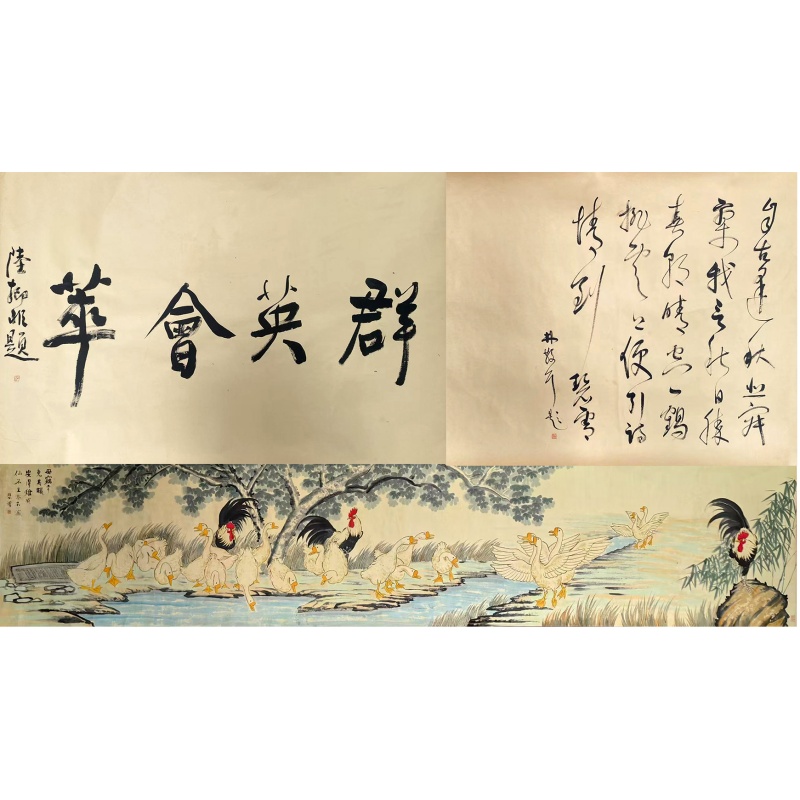 群英會萃
陸抑非題
自古逢秋悲寂
寥我言秋日勝
春朝晴空一鶴
排雲上便引詩
情到碧霄
林散耳題